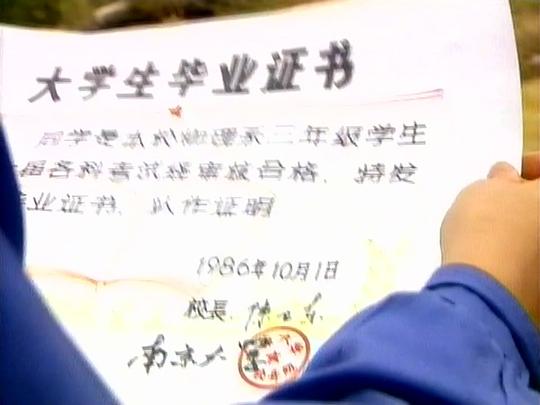 大学生毕业证书
同学是本校物理系三年级学生
届各科考试经审核合格，特发
毕业证书，以作证明
1986年10月1日
校長
南京大学